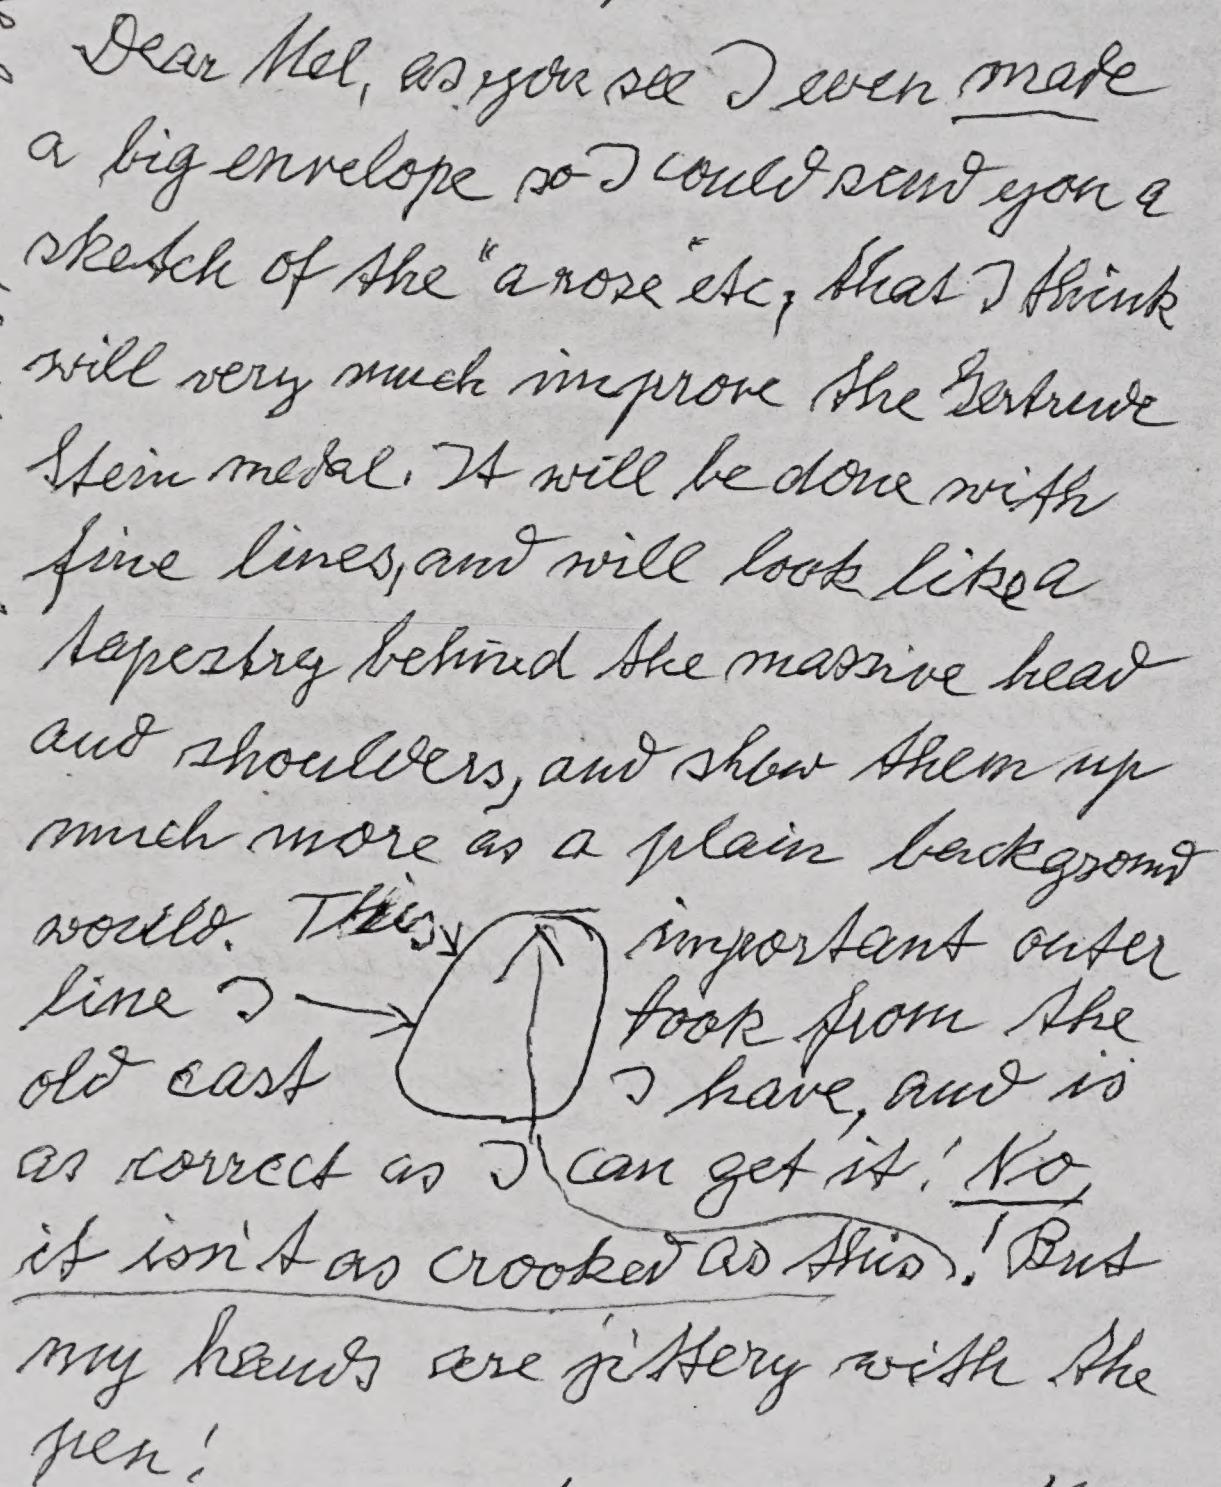 Dear Mel, as you see I even made
a big envelope so I could send you a
sketch of the "a rose" etc, that I think
will very much improve the Gertrude
Stein medal. It will be done with
fine lines, and will look like a
tapestry behind the massive head
and shoulders, and show them up
much more as a plain background
would. This important outer
line I took from the
old cast I have, and is
as correct as I can get it! No,
it isn't as crooked as this! But
my hands are jittery with the
pen!